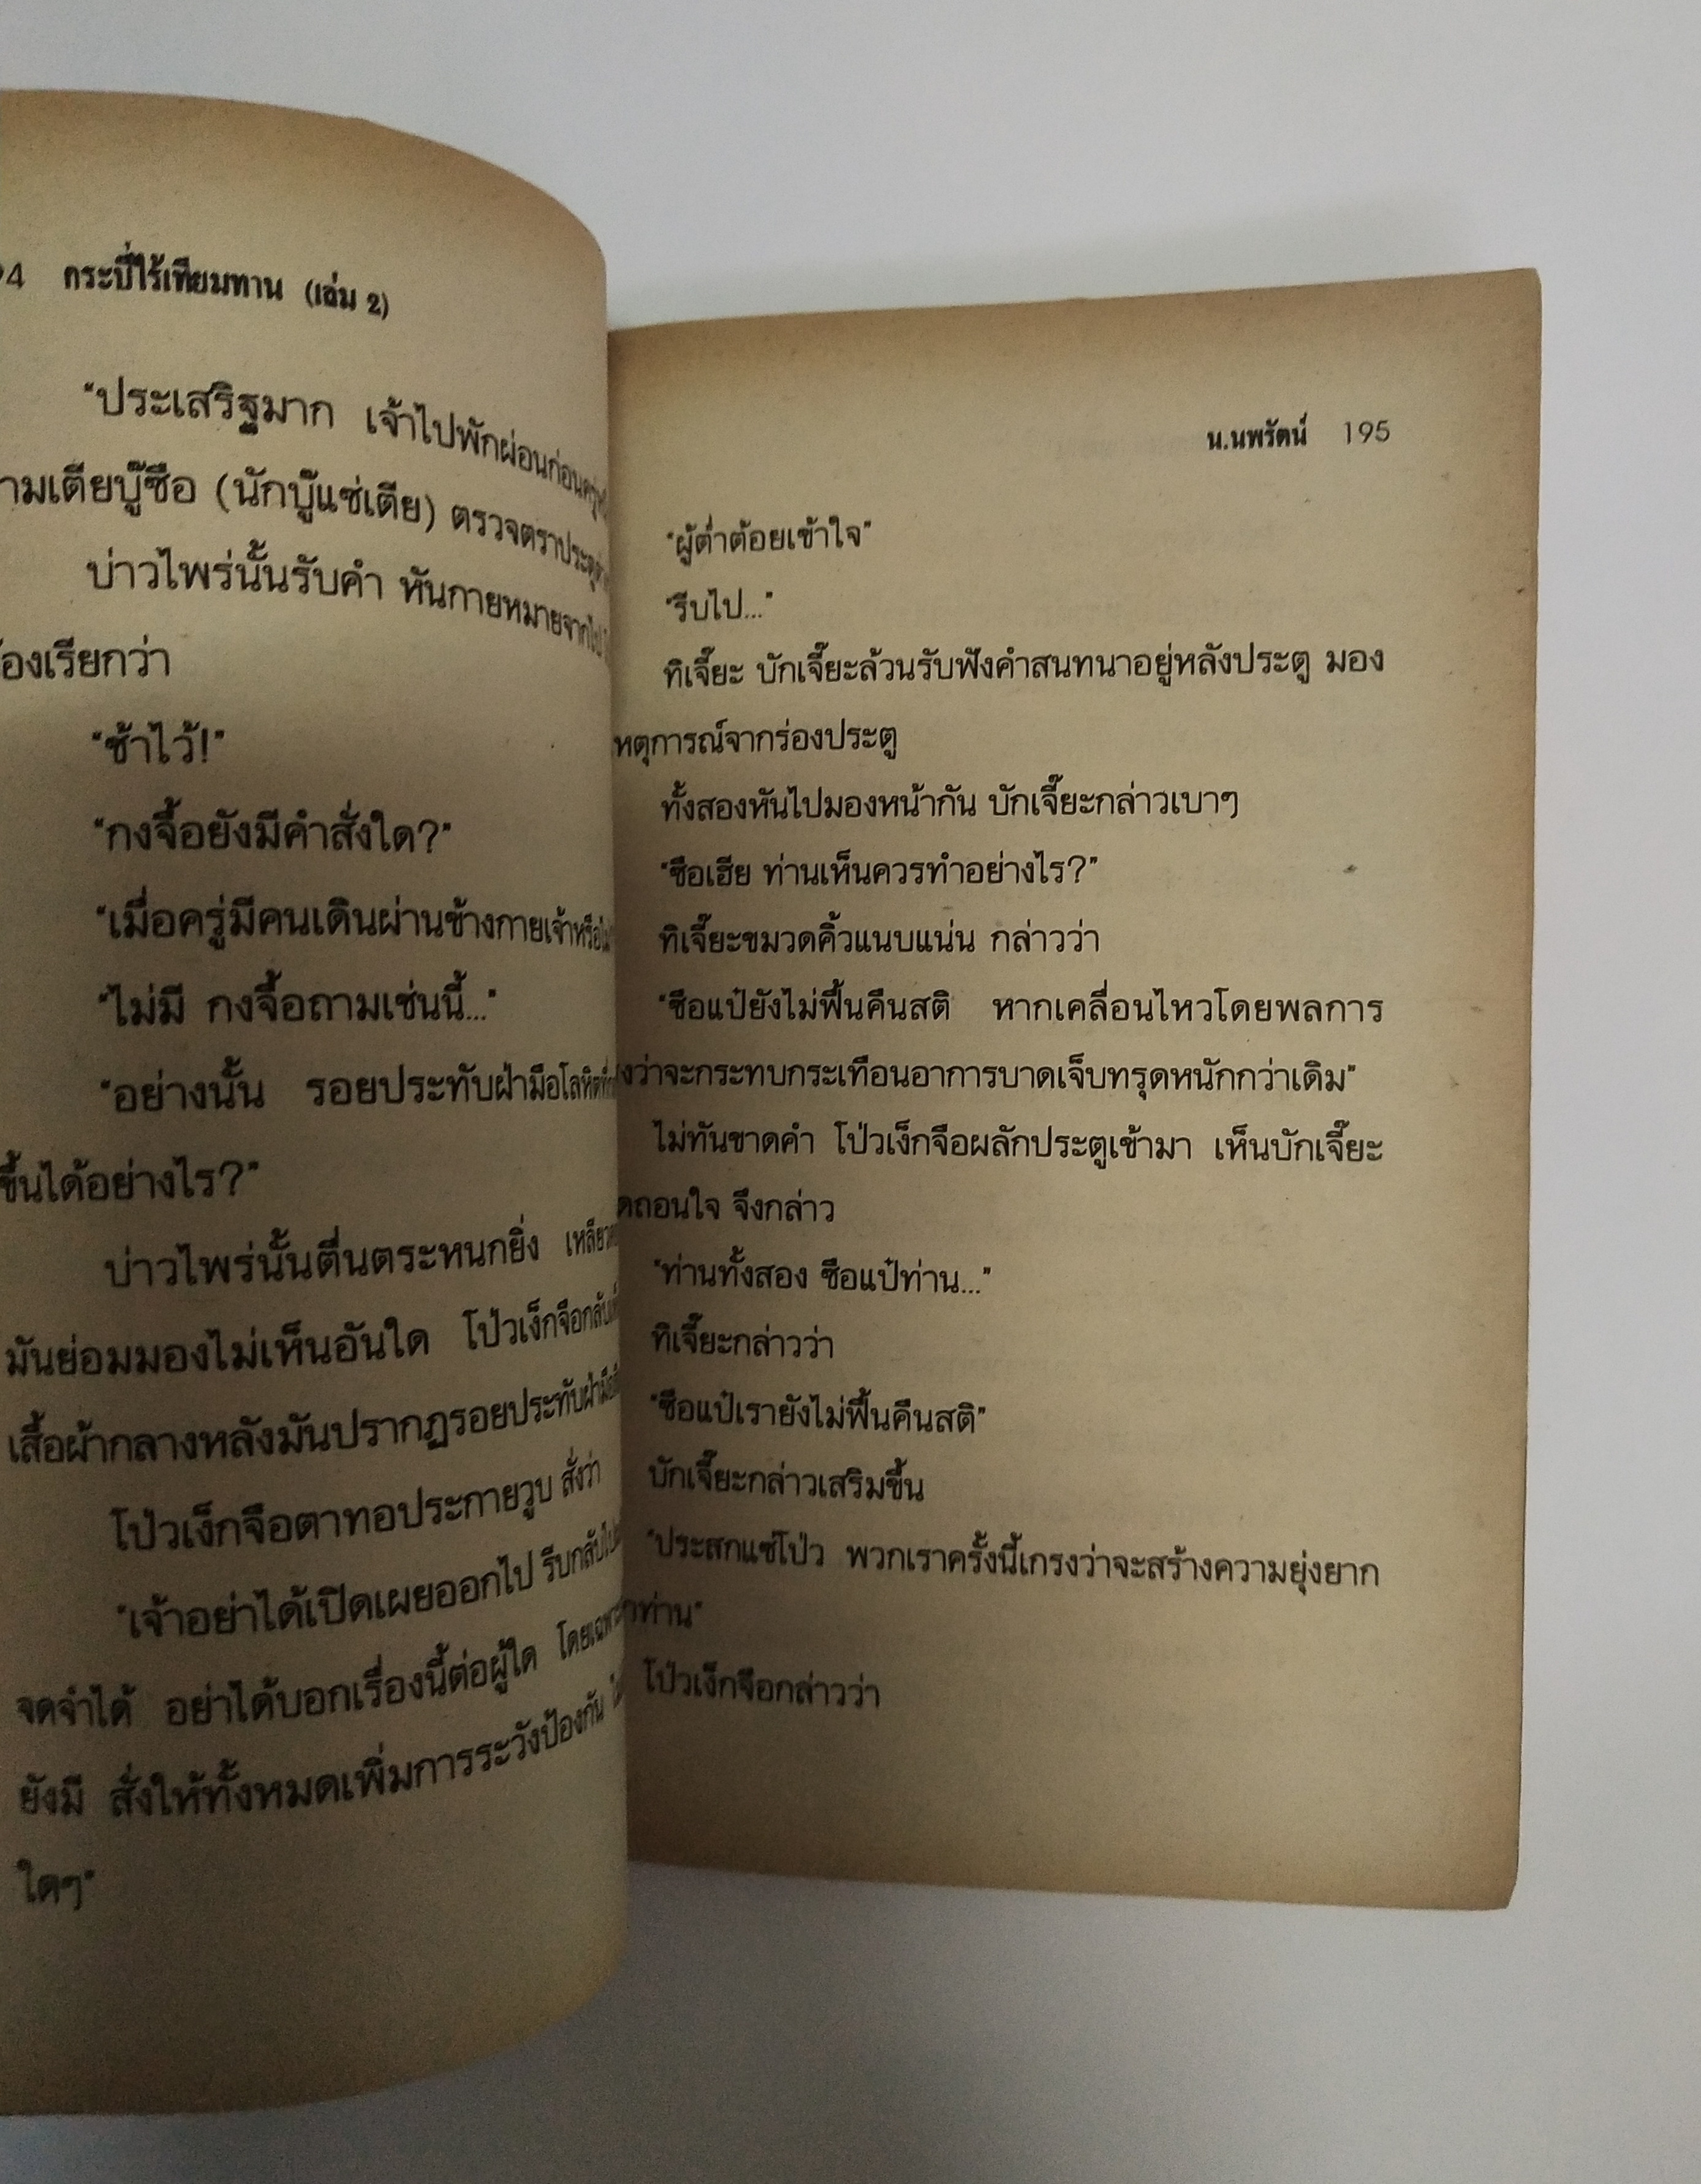 กระบี่ไร้เทียมทาน (เล่ม 2)
"ประเสริฐมาก เจ้าไปพักผ่อนก่อน
ามเตียบู๊ซือ (นักบู๊แซ่เตีย) ตรวจตราประตู
บ่าวไพร่นั้นรับคำ หันกายหมายจากไป
้องเรียกว่า
"ช้าไว้!"
"กงจื้อยังมีคำสั่งใด?"
"เมื่อครู่มีคนเดินผ่านข้างกายเจ้าหรือไม่
"ไม่มี กงจื้อถามเช่นนี้..."
"อย่างนั้น รอยประทับฝ่ามือโลหิต
ขึ้นได้อย่างไร?"
บ่าวไพร่นั้นตื่นตระหนกยิ่ง
มันย่อมมองไม่เห็นอันใด โป่วเง็กจือกลับ
เสื้อผ้ากลางหลังมันปรากฏรอยประทับฝ่ามือ
โป่วเง็กจือตาทอประกายวูบ สั่งว่า
"เจ้าอย่าได้เปิดเผยออกไป รีบกลับไป
จดจำได้ อย่าได้บอกเรื่องนี้ต่อผู้ใด โดยเฉพาะ
ยังมี สั่งให้ทั้งหมดเพิ่มการระวังป้องกัน
ใดๆ"
น.นพรัตน์ 195
"ผู้ต่ำต้อยเข้าใจ"
"รีบไป..."
ทิเจี๊ยะ บักเจี๊ยะล้วนรับฟังคำสนทนาอยู่หลังประตู มอง
หตุการณ์จากร่องประตู
ทั้งสองหันไปมองหน้ากัน บักเจี๊ยะกล่าวเบาๆ
"ซือเฮีย ท่านเห็นควรทำอย่างไร?"
ทิเจี๊ยะขมวดคิ้วแนบแน่น กล่าวว่า
"ซือแป๋ยังไม่ฟื้นคืนสติ หากเคลื่อนไหวโดยพลการ
งว่าจะกระทบกระเทือนอาการบาดเจ็บทรุดหนักกว่าเดิม"
ไม่ทันขาดคำ โป่วเง็กจือผลักประตูเข้ามา เห็นบักเจี๊ยะ
ดถอนใจ จึงกล่าว
"ท่านทั้งสอง ซือแป๋ท่าน..."
ทิเจี๊ยะกล่าวว่า
"ซือแป๋เรายังไม่ฟื้นคืนสติ"
บักเจี๊ยะกล่าวเสริมขึ้น
"ประสกแซ่โป่ว พวกเราครั้งนี้เกรงว่าจะสร้างความยุ่งยาก
ท่าน"
โป่วเง็กจือกล่าวว่า